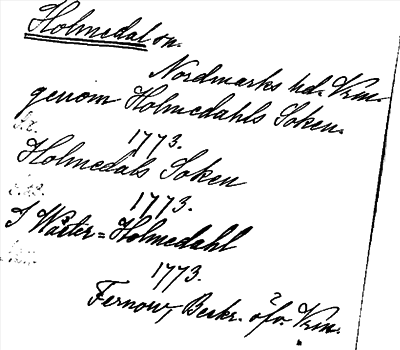 Holmedal sn.
Nordmarks hd. Vrm.
genom Holmedahls Soken.
1773.
Holmedals Soken
1773.
I Wäster=Holmedahl
1773.
Fernow, Beskr. öfv. Vrm.